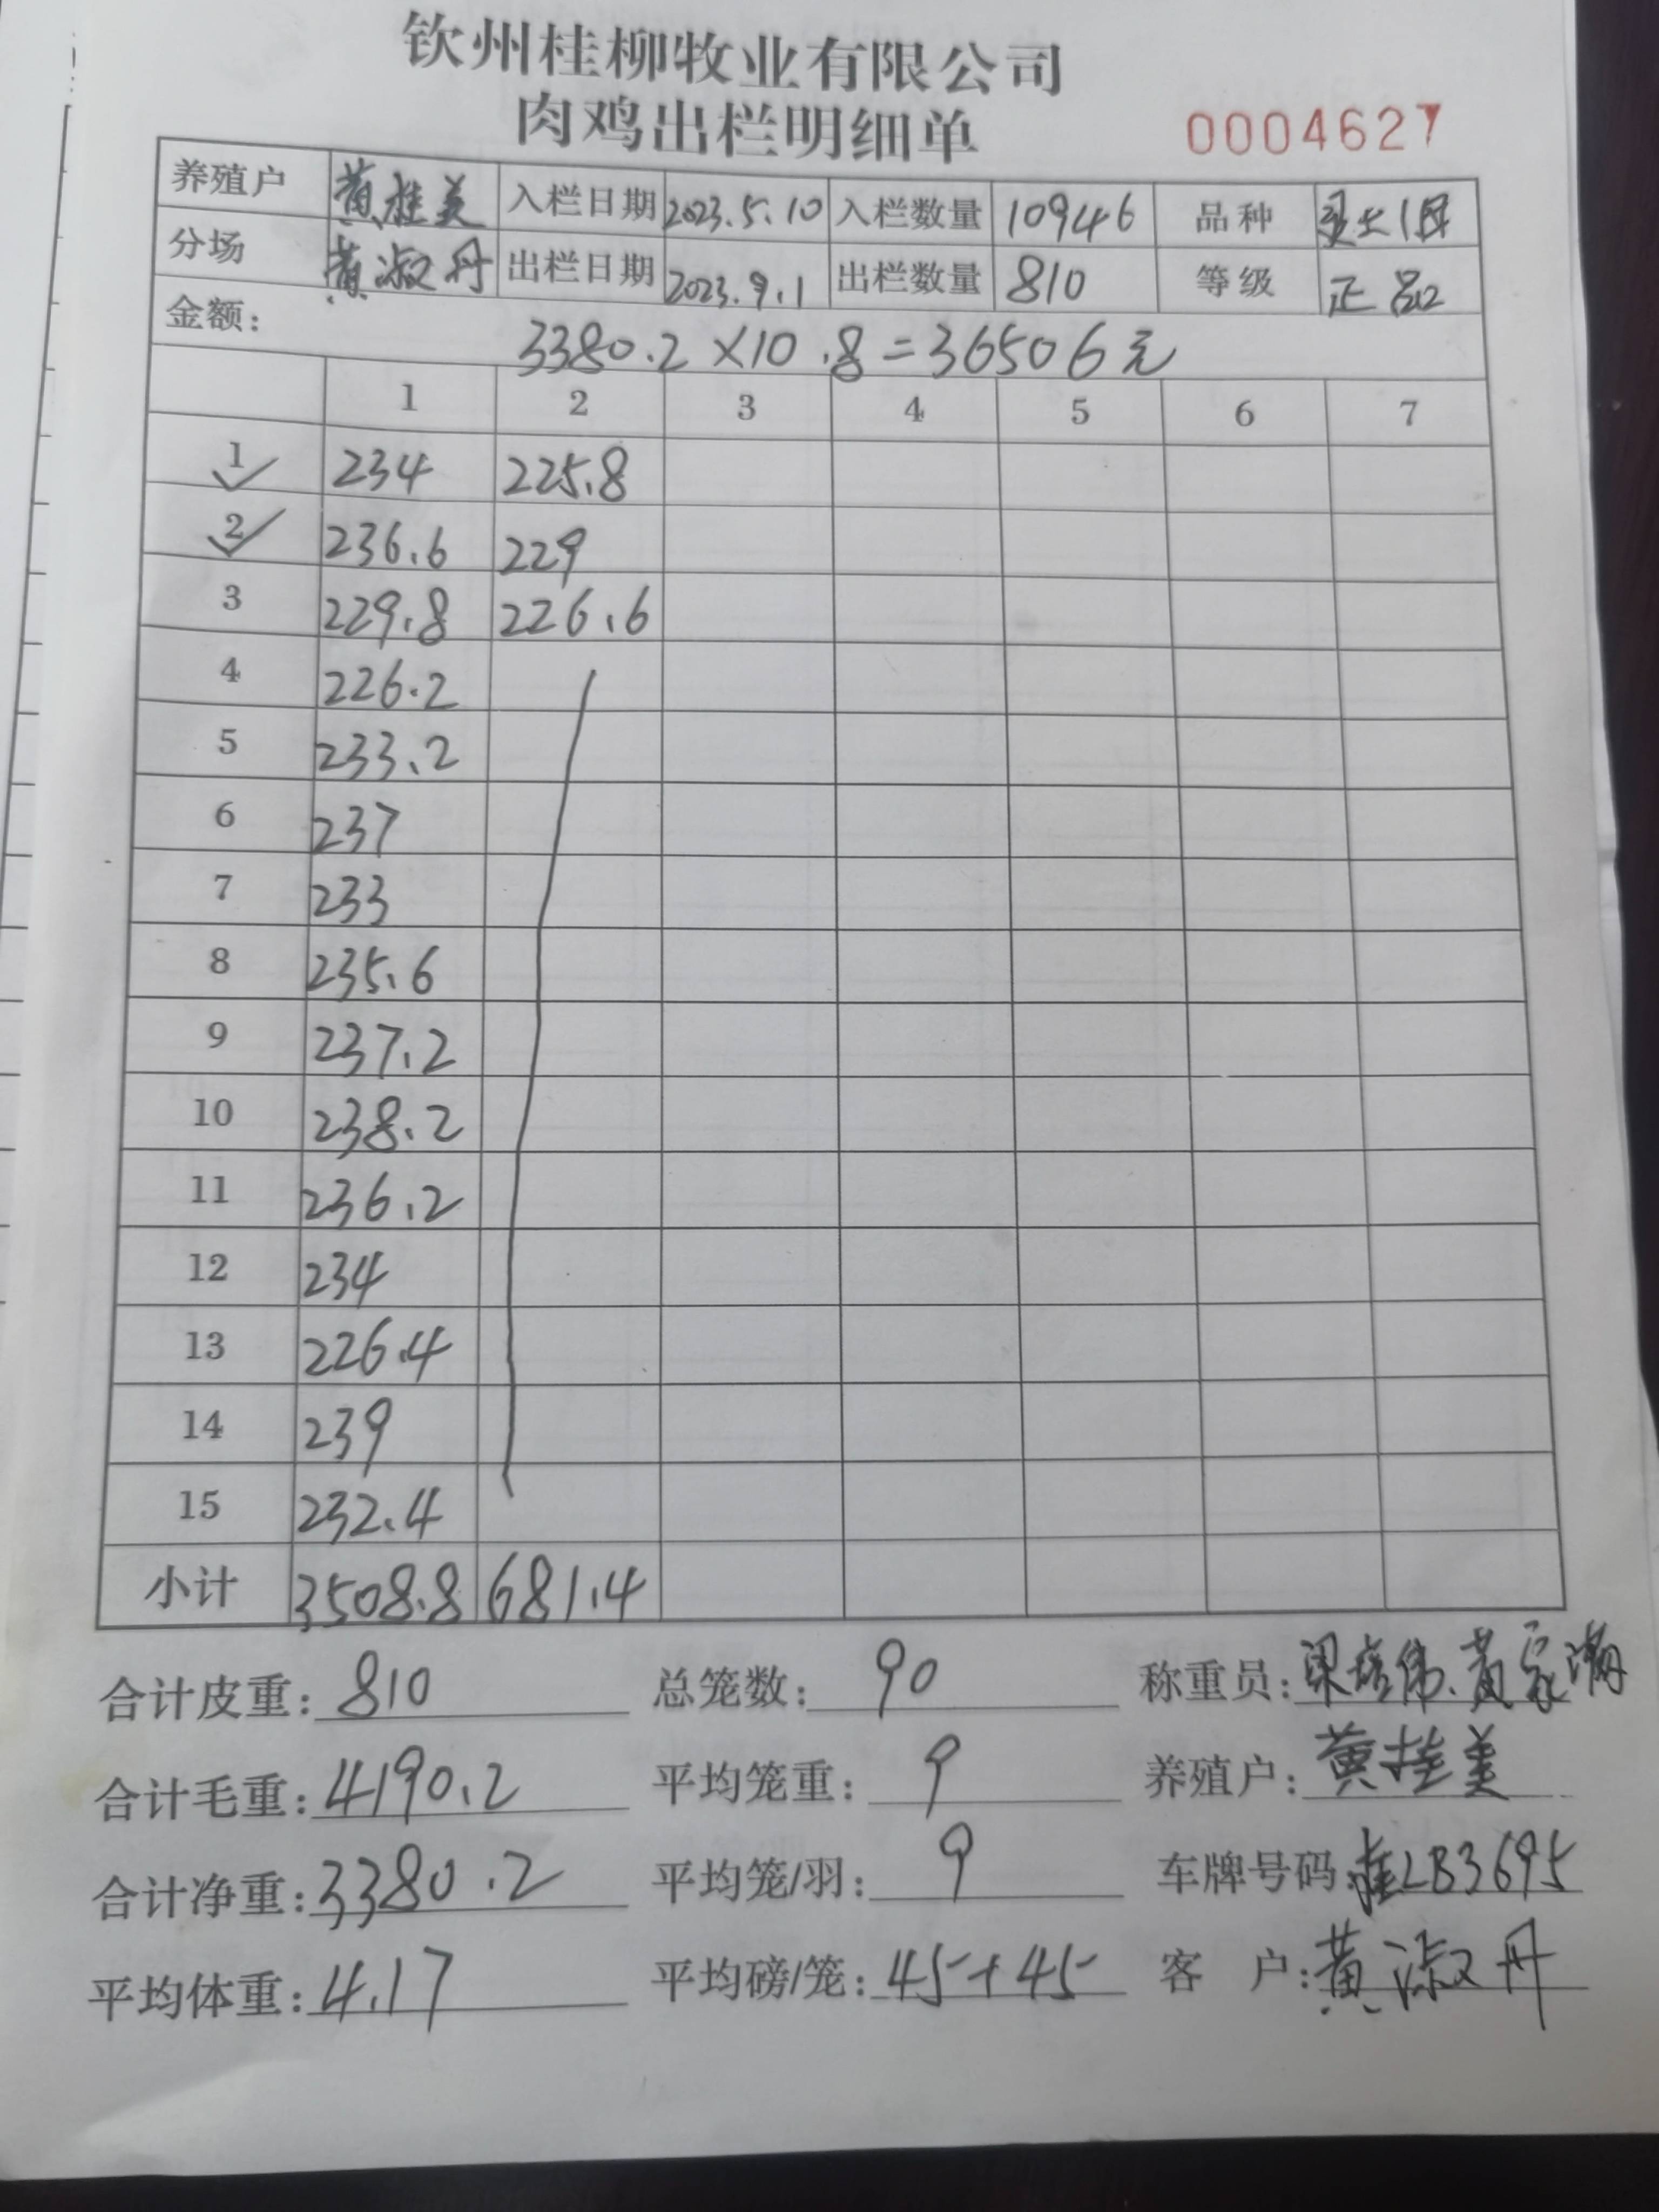 钦州桂柳牧业有限公司
肉鸡出栏明细单 0004627
养殖户 黄桂美 入栏日期 2023.5.10 入栏数量 10946 品种
分场 黄淑丹 出栏日期 2023.9.1 出栏数量 810 等级 正品
金额: 3380.2×10.8=36506元
1 2 3 4 5 6 7
1 234 225.8
2 236.6 229
3 229.8 226.6
4 226.2
5 233.2
6 237
7 233
8 235.6
9 237.2
10 238.2
11 236.2
12 234
13 226.4
14 239
15 232.4
小计 3508.8 681.4
合计皮重: 810 总笼数: 90 称重员:
合计毛重: 4190.2 平均笼重: 9 养殖户: 黄桂美
合计净重: 3380.2 平均笼/羽: 9 车牌号码 桂LB3695
平均体重: 4.17 平均磅/笼: 45+45 客 户: 黄淑丹